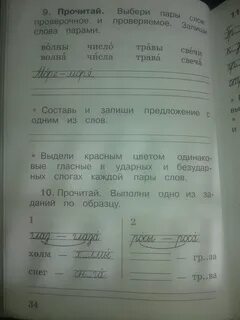 9. Прочитай. Выбери пары слов:
проверочное и проверяемое. Запиши
слова парами.
во́лны чи́сло тра́вы све́чи
волна́ чи́сла трава́ свеча́
Море – моря
• Составь и запиши предложение с
одним из слов.
• Выдели красным цветом одинако-
вые гласные в ударных и безудар-
ных слогах каждой пары слов.
10. Прочитай. Выполни одно из за-
даний по образцу.
1 2
глаз – глаза́ росы – роса́
холм – х..лмы – гр..за
снег – – тр..ва
34